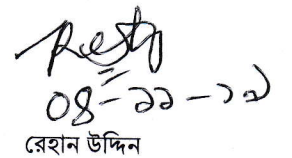 ০৪-১১-১৯
রেহান উদ্দিন